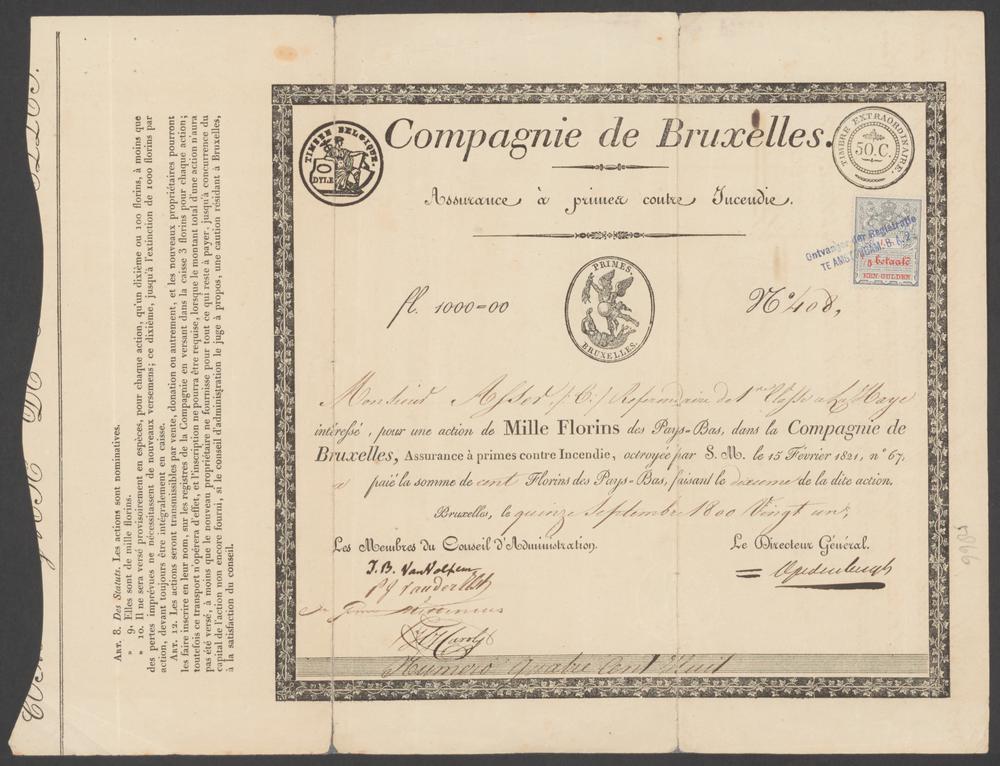 Compagnie de Bruxelles.
TIMBRE BELGIQUE.
DYLE
TIMBRE EXTRAORDINAIRE.
50.C.
Assurance à primes contre Incendie.
Ontvanger der Registratie
TE AMSTERDAM. B.
betaald
EEN GULDEN
PRIMES.
BRUXELLES.
fl. 1000=00
N.º 408,
Monsieur Asser Référendaire de 1.re Classe à La Haye
intéressé, pour une action de Mille Florins des Pays-Bas, dans la Compagnie de
Bruxelles, Assurance à primes contre Incendie, octroyée par S. M. le 15 Février 1821, n° 67,
a paié la somme de cent Florins des Pays-Bas, faisant le dixieme de la dite action.
Bruxelles, le quinze Septembre 1800 Vingt un
Les Membres du Conseil d'Administration.
Le Directeur Général.
J. B. Van Volxem
Numéro Quatre Cent Huit
9985
ART. 8. Des Statuts. Les actions sont nominatives.
» 9. Elles sont de mille florins.
» 10. Il ne sera versé provisoirement en espèces, pour chaque action, qu'un dixième ou 100 florins, à moins que
des pertes imprévues ne nécessitassent de nouveaux versemens; ce dixième, jusqu'à l'extinction de 1000 florins par
action, devant toujours être intégralement en caisse.
ART. 12. Les actions seront transmissibles par vente, donation ou autrement, et les nouveaux propriétaires pourront
les faire inscrire en leur nom, sur les registres de la Compagnie en versant dans la caisse 3 florins pour chaque action;
toutefois ce transport n'opérera d'effet, et l'inscription ne pourra être requise, lorsque le montant total d'une action n'aura
pas été versé, à moins que le nouveau propriétaire ne fournisse pour tout ce qui reste à payer, jusqu'à concurrence du
capital de l'action non encore fourni, si le conseil d'administration le juge à propos, une caution résidant à Bruxelles,
à la satisfaction du conseil.